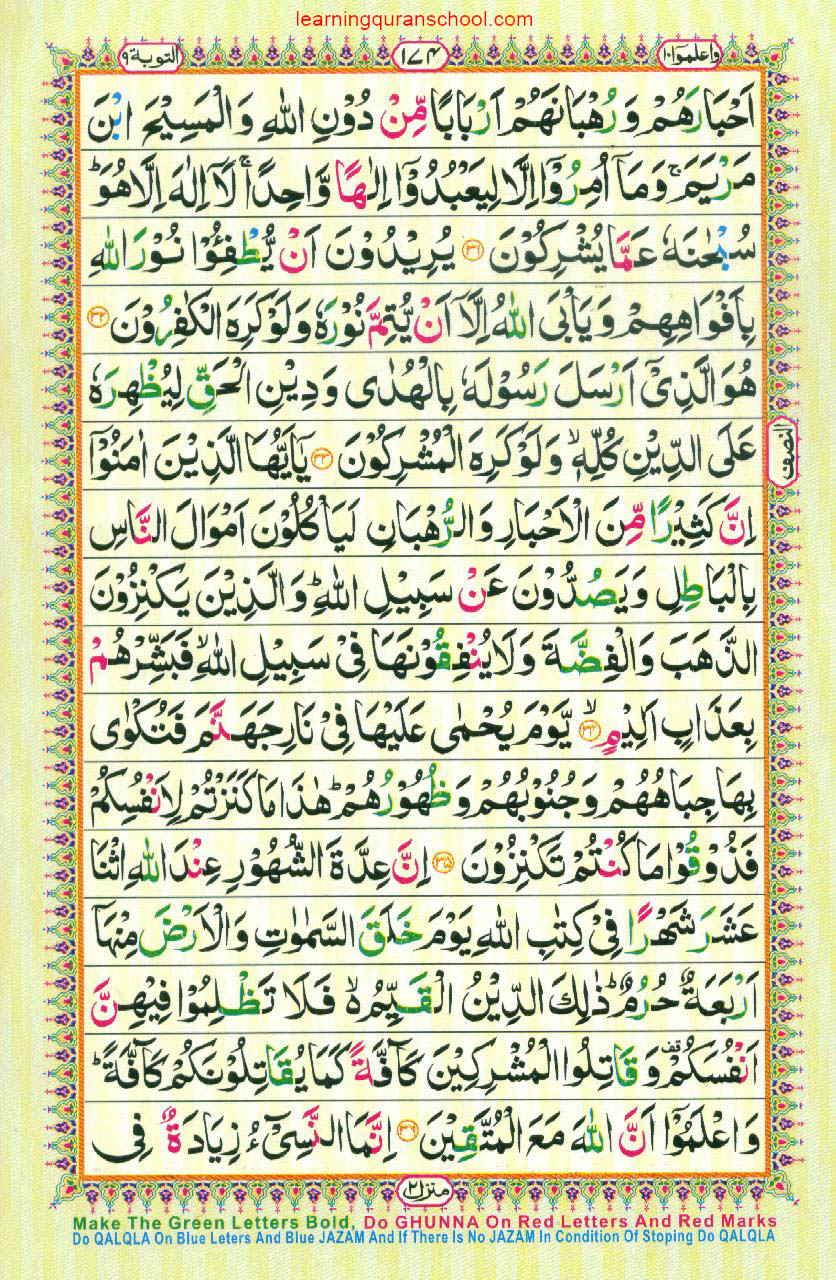 learningquranschool.com
التوبة ٩
١٧٤
واعلموا ١٠
اَحْبَارَهُمْ وَ رُهْبَانَهُمْ اَرْبَابًا مِّنْ دُوْنِ اللّٰهِ وَ الْمَسِيْحَ ابْنَ
مَرْيَمَ ۚ وَ مَاۤ اُمِرُوْۤا اِلَّا لِيَعْبُدُوْۤا اِلٰهًا وَّاحِدًا ۚ لَاۤ اِلٰهَ اِلَّا هُوَ ؕ
سُبْحٰنَهٗ عَمَّا يُشْرِكُوْنَ ﴿٣١﴾ يُرِيْدُوْنَ اَنْ يُّطْفِـُٔوْا نُوْرَ اللّٰهِ
بِاَفْوَاهِهِمْ وَ يَاْبَى اللّٰهُ اِلَّاۤ اَنْ يُّتِمَّ نُوْرَهٗ وَ لَوْ كَرِهَ الْكٰفِرُوْنَ ﴿٣٢﴾
هُوَ الَّذِيْۤ اَرْسَلَ رَسُوْلَهٗ بِالْهُدٰى وَ دِيْنِ الْحَقِّ لِيُظْهِرَهٗ
عَلَى الدِّيْنِ كُلِّهٖ ۙ وَ لَوْ كَرِهَ الْمُشْرِكُوْنَ ﴿٣٣﴾ يٰۤاَيُّهَا الَّذِيْنَ اٰمَنُوْۤا
النصف
اِنَّ كَثِيْرًا مِّنَ الْاَحْبَارِ وَ الرُّهْبَانِ لَيَاْكُلُوْنَ اَمْوَالَ النَّاسِ
بِالْبَاطِلِ وَ يَصُدُّوْنَ عَنْ سَبِيْلِ اللّٰهِ ؕ وَ الَّذِيْنَ يَكْنِزُوْنَ
الذَّهَبَ وَ الْفِضَّةَ وَ لَا يُنْفِقُوْنَهَا فِيْ سَبِيْلِ اللّٰهِ ۙ فَبَشِّرْهُمْ
بِعَذَابٍ اَلِيْمٍ ﴿٣٤﴾ ۙ يَّوْمَ يُحْمٰى عَلَيْهَا فِيْ نَارِ جَهَنَّمَ فَتُكْوٰى
بِهَا جِبَاهُهُمْ وَ جُنُوْبُهُمْ وَ ظُهُوْرُهُمْ ؕ هٰذَا مَا كَنَزْتُمْ لِاَنْفُسِكُمْ
فَذُوْقُوْا مَا كُنْتُمْ تَكْنِزُوْنَ ﴿٣٥﴾ اِنَّ عِدَّةَ الشُّهُوْرِ عِنْدَ اللّٰهِ اثْنَا
عَشَرَ شَهْرًا فِيْ كِتٰبِ اللّٰهِ يَوْمَ خَلَقَ السَّمٰوٰتِ وَ الْاَرْضَ مِنْهَاۤ
اَرْبَعَةٌ حُرُمٌ ؕ ذٰلِكَ الدِّيْنُ الْقَيِّمُ ۙ۬ فَلَا تَظْلِمُوْا فِيْهِنَّ
اَنْفُسَكُمْ قف وَ قَاتِلُوا الْمُشْرِكِيْنَ كَآفَّةً كَمَا يُقَاتِلُوْنَكُمْ كَآفَّةً ؕ
وَ اعْلَمُوْۤا اَنَّ اللّٰهَ مَعَ الْمُتَّقِيْنَ ﴿٣٦﴾ اِنَّمَا النَّسِيْٓءُ زِيَادَةٌ فِي
منزل ٢
Make The Green Letters Bold, Do GHUNNA On Red Letters And Red Marks
Do QALQLA On Blue Leters And Blue JAZAM And If There Is No JAZAM In Condition Of Stoping Do QALQLA